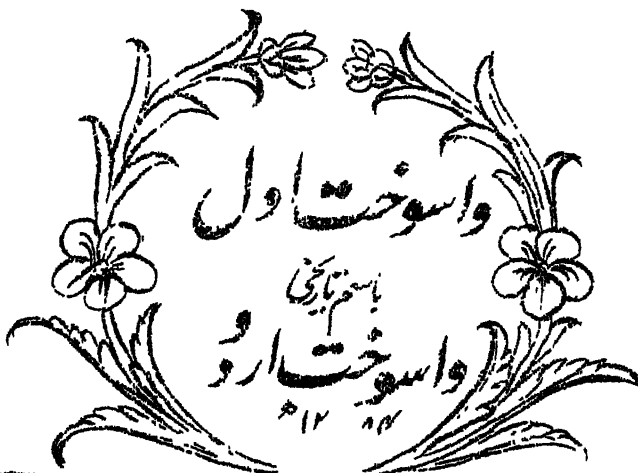 واسوخت اول
باسم تاریخی
واسوخت اردو
۱۲۸۴ھ